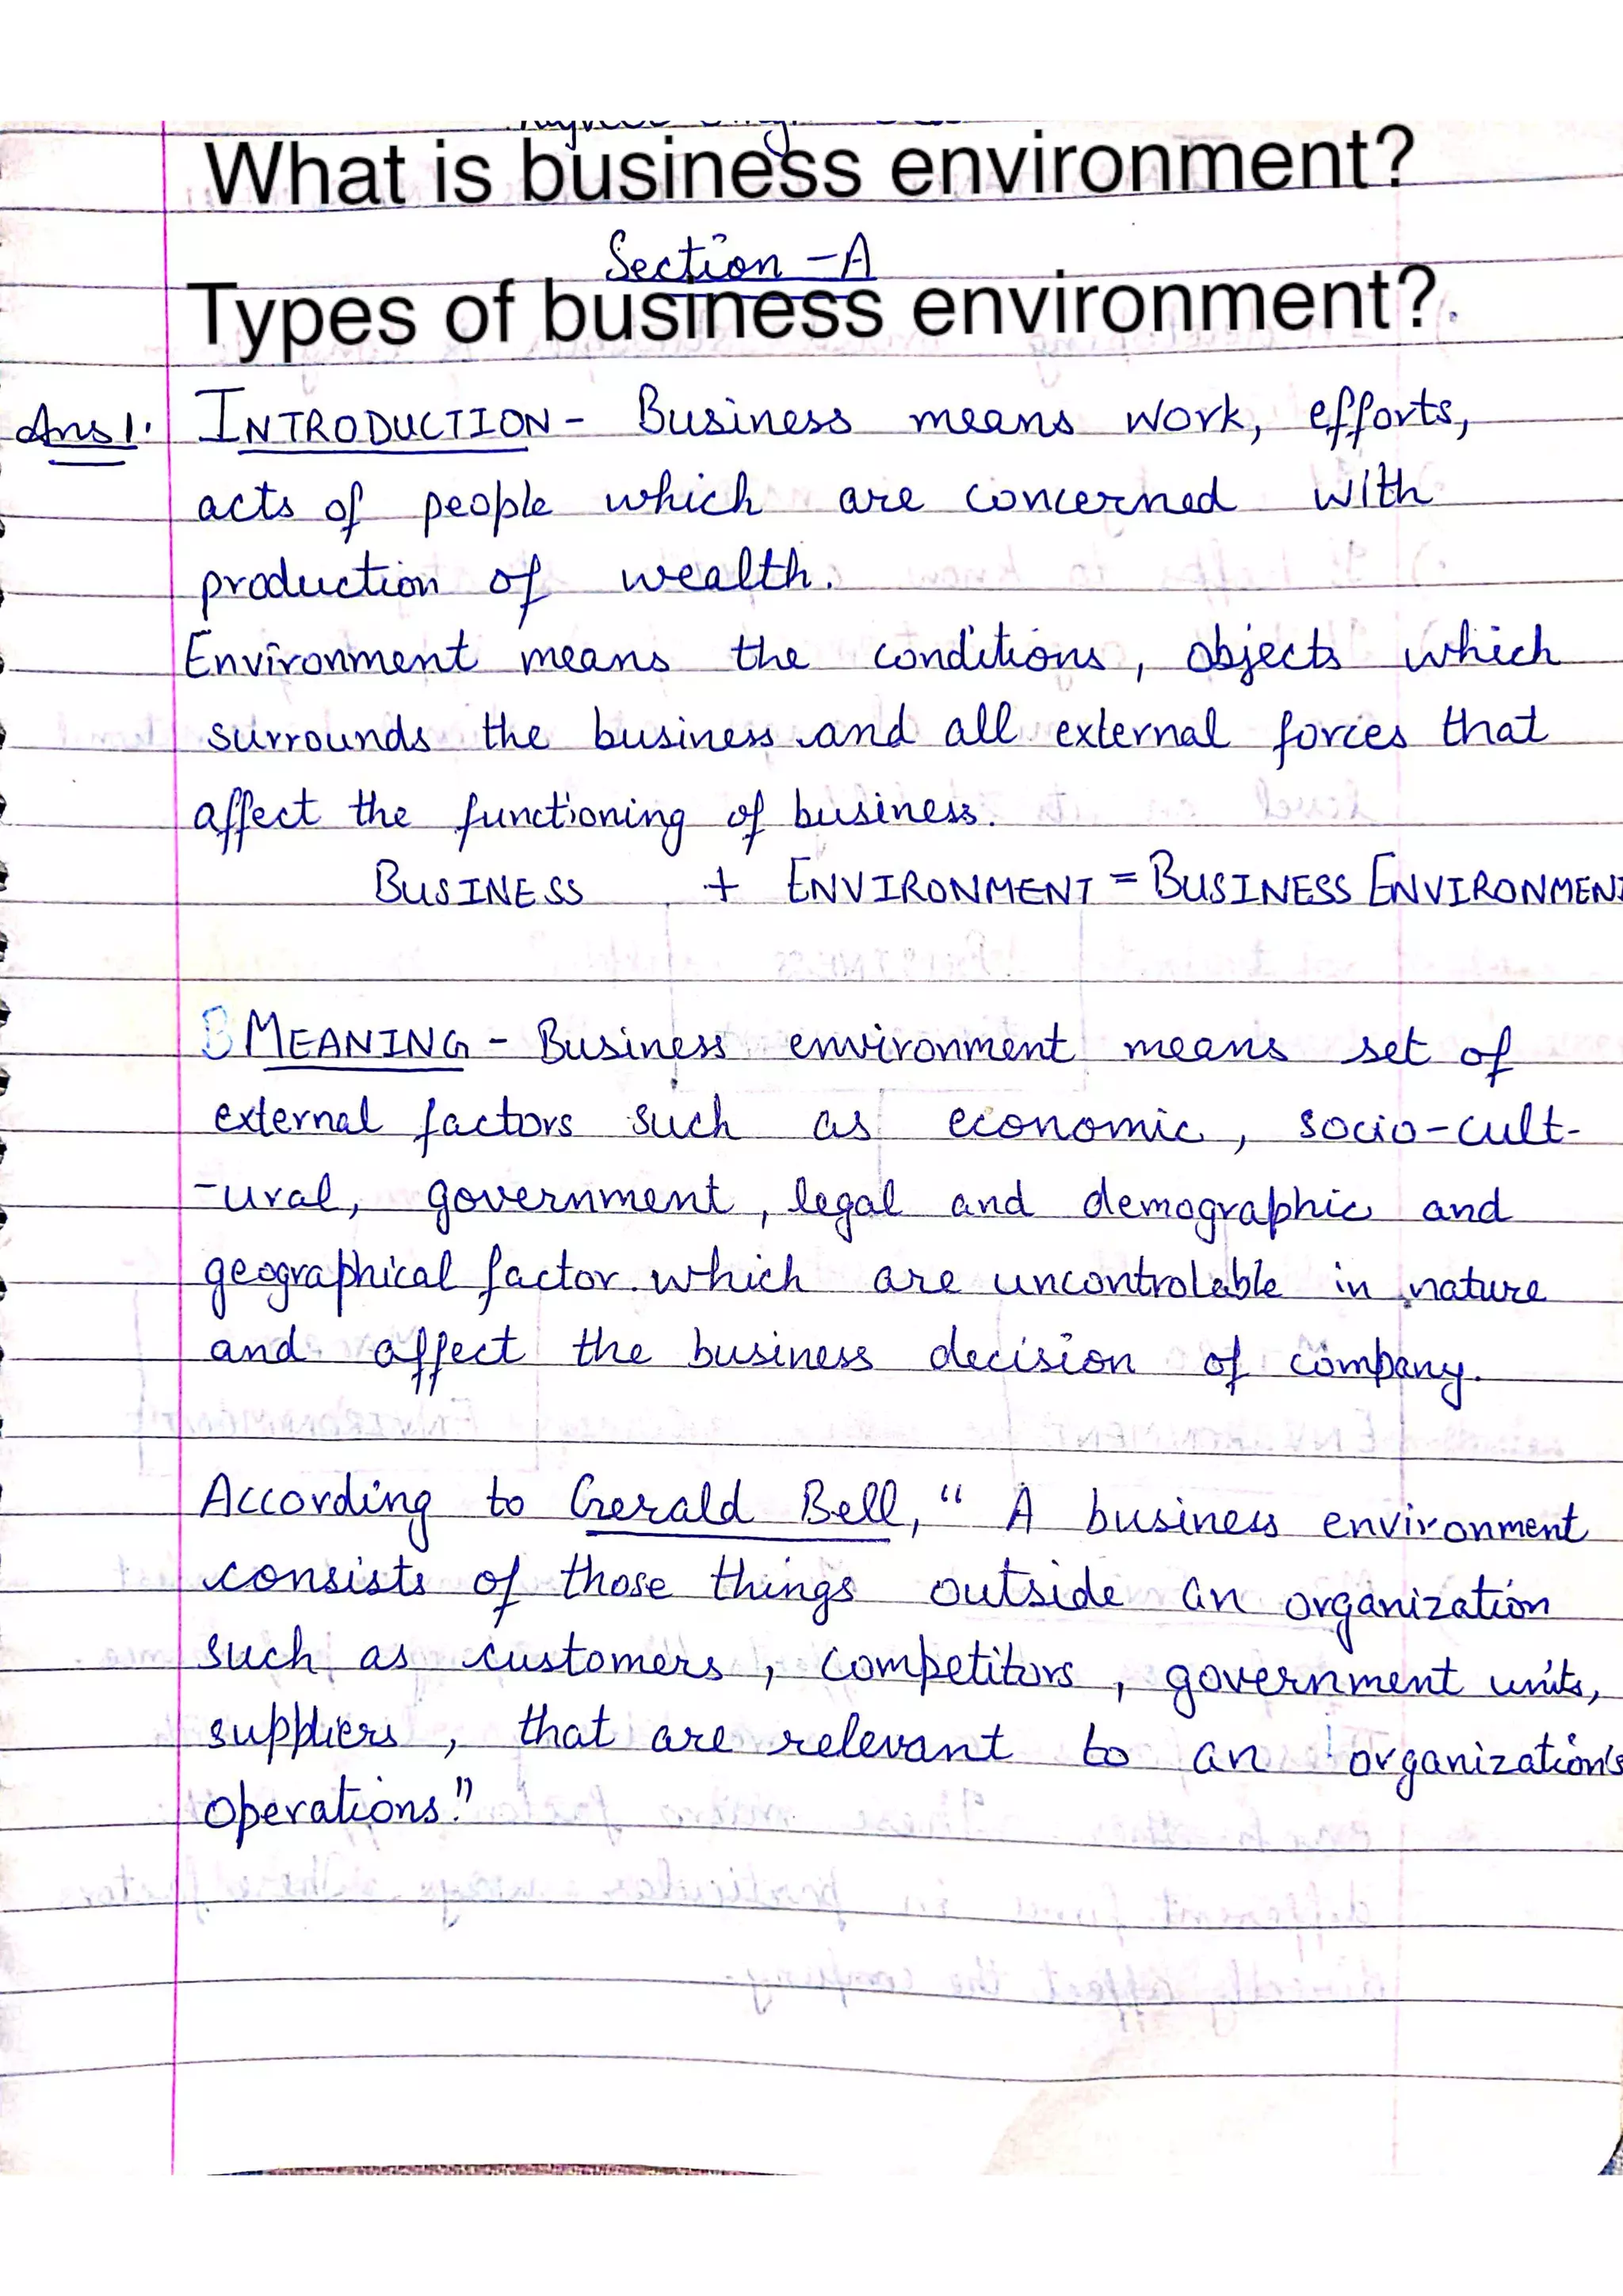 What is business environment?
Section - A
Types of business environment?
Ans 1. INTRODUCTION - Business means work, efforts,
acts of people which are concerned with
production of wealth.
Environment means the conditions, objects which
surrounds the business and all external forces that
affect the functioning of business.
BUSINESS + ENVIRONMENT = BUSINESS ENVIRONMENT
MEANING - Business environment means set of
external factors such as economic, socio-cult-
-ural, government, legal and demographic and
geographical factor which are uncontrolable in nature
and affect the business decision of company.
According to Gerald Bell, " A business environment
consists of those things outside an organization
such as customers, competitors, government units,
suppliers, that are relevant to an organization's
operations."